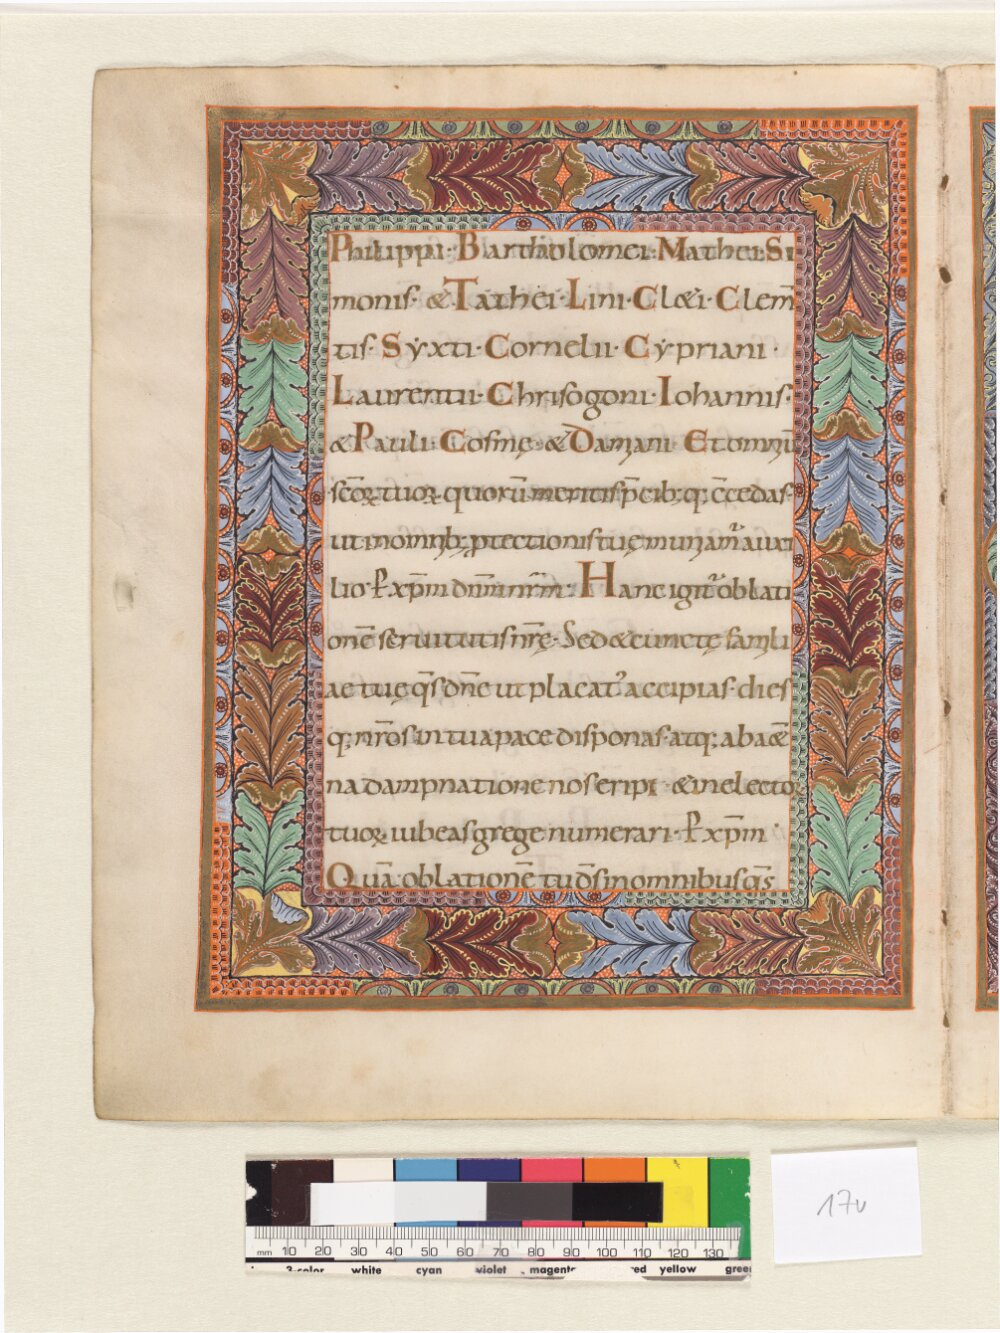 Philippi· Bartholomei· Mathei· Si
monis· & Tathei· Lini· Cl&i· Clem̄
tis Syxti· Cornelii· Cypriani·
Laurentii· Chrisogoni· Iohannis·
& Pauli· Cosme· & Damiani Et omniū
scōꝝ tuoꝝ quorū meritis p̄cib;q; c̄cedas·
ut in omnib; ꝓtectionis tuę muniam̄ auxi
lio· P xp̄m dn̄m nr̄m· Hanc igit̄ oblati
onē seruitutis nr̄ę· Sed & cunctę famili
ae tuę q̄s dn̄e ut placat' accipias· dies
q; nr̄os in tua pace disponas· atq; ab a&̄
na dampnatione nos eripi· & in elector
tuoꝝ iubeas grege numerari· P xp̄m·
Quā oblationē tu ds̄ in omnibus qs̄
17v
mm 10 20 30 40 50 60 70 80 90 100 110 120 130
3-color white cyan violet magenta red yellow green